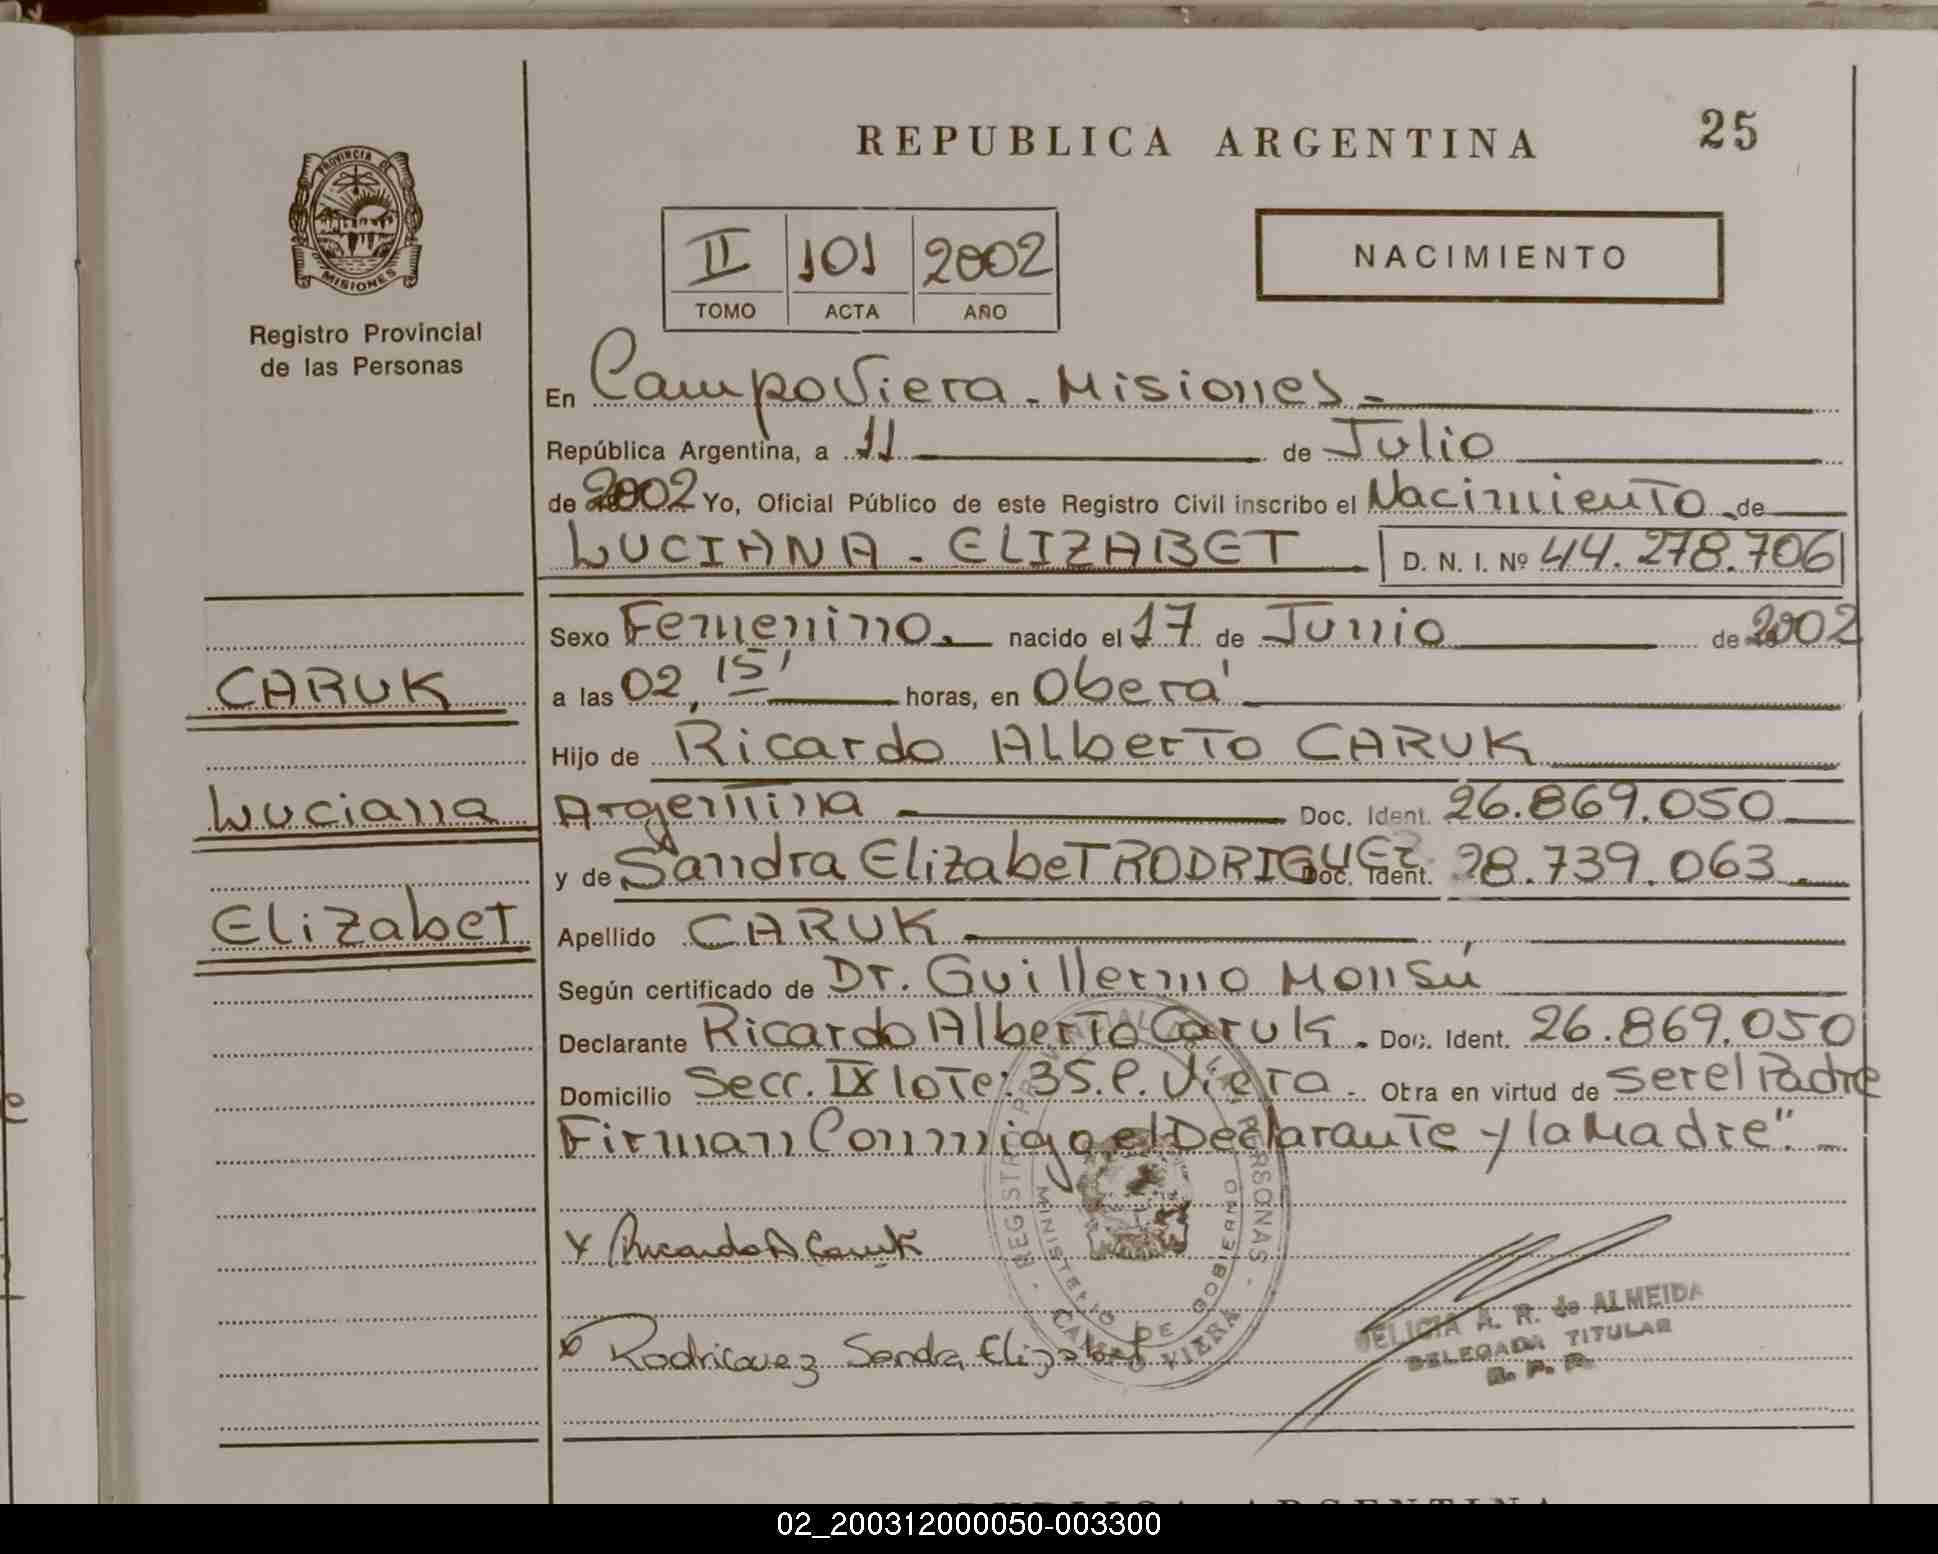 REPUBLICA ARGENTINA
25
PROVINCIA DE
MISIONES
Registro Provincial
de las Personas
II 101 2002
TOMO ACTA AÑO
NACIMIENTO
En Campo Viera - Misiones -
República Argentina, a 11 de Julio
de 2002 Yo, Oficial Público de este Registro Civil inscribo el Nacimiento de
LUCIANA - ELIZABET D. N. I. Nº 44.278.706
Sexo Femenino. nacido el 17 de Junio de 2002
CARUK
a las 02,15' horas, en Oberá
Hijo de Ricardo Alberto CARUK
Luciana
Argentina Doc. Ident. 26.869.050
y de Sandra Elizabet RODRIGUEZ Doc. Ident. 28.739.063.
Elizabet
Apellido CARUK
Según certificado de Dr. Guillermo Monsú
Declarante Ricardo Alberto Caruk. Doc. Ident. 26.869.050
Domicilio Secc. IX lote: 35. C. Viera - Otra en virtud de ser el Padre
Firman Conmigo el Declarante y la Madre". -
x Ricardo A Caruk
x Rodriguez Sandra Elizabet
REGISTRO PROVINCIAL DE LAS PERSONAS
MINISTERIO DE GOBIERNO
CAMPO VIERA
DELICIA A. R. de ALMEIDA
DELEGADA TITULAR
R. P. P.
REPUBLICA ARGENTINA
02_200312000050-003300